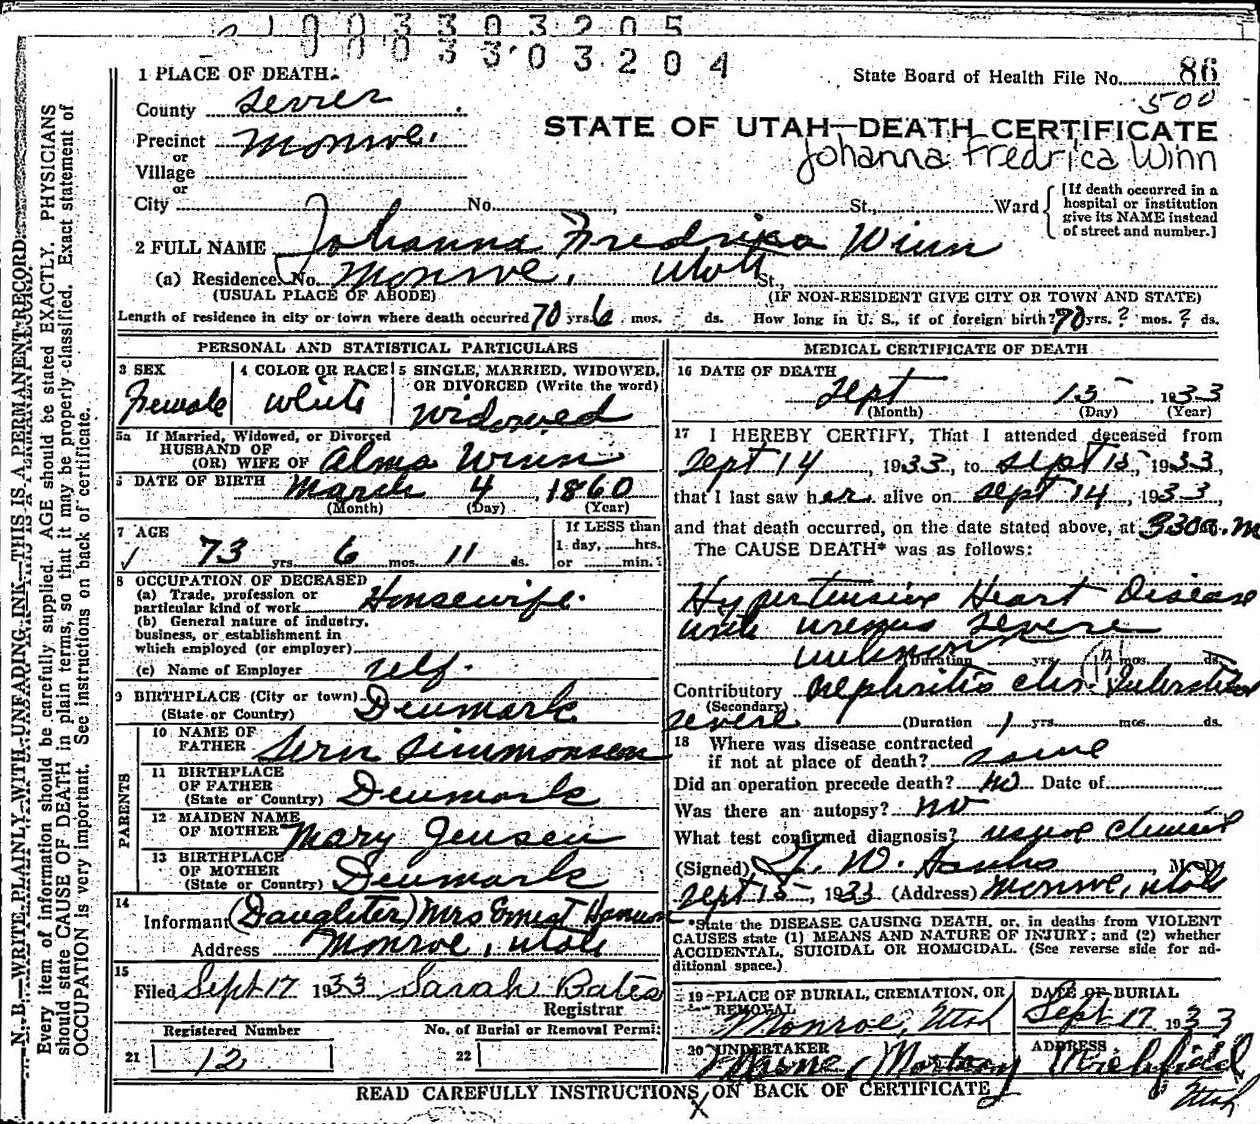 0 0 3 3 0 3 2 0 5
0 0 0 3 3 0 3 2 0 4
1 PLACE OF DEATH.
State Board of Health File No. 86
500
County Sevier
STATE OF UTAH—DEATH CERTIFICATE
Precinct Monroe.
Johanna Fredrica Winn
or
Village
or
City No. , St., Ward
[If death occurred in a
hospital or institution
give its NAME instead
of street and number.]
2 FULL NAME Johanna Fredrika Winn
(a) Residence. No. Monroe, Utah St.,
(USUAL PLACE OF ABODE) (IF NON-RESIDENT GIVE CITY OR TOWN AND STATE)
Length of residence in city or town where death occurred 70 yrs. 6 mos. ds. How long in U. S., if of foreign birth? 70 yrs. ? mos. ? ds.
PERSONAL AND STATISTICAL PARTICULARS
3 SEX
Female
4 COLOR OR RACE
White
5 SINGLE, MARRIED, WIDOWED,
OR DIVORCED (Write the word)
Widowed
5a If Married, Widowed, or Divorced
HUSBAND OF
(OR) WIFE OF Alma Winn
6 DATE OF BIRTH March 4, 1860
(Month) (Day) (Year)
7 AGE
73 yrs. 6 mos. 11 ds.
If LESS than
1 day, hrs.
or min.
8 OCCUPATION OF DECEASED
(a) Trade, profession or
particular kind of work Housewife.
(b) General nature of industry,
business, or establishment in
which employed (or employer)
(c) Name of Employer self.
9 BIRTHPLACE (City or town) Denmark
(State or Country)
PARENTS
10 NAME OF
FATHER Sern Simmonsen
11 BIRTHPLACE
OF FATHER
(State or Country) Denmark
12 MAIDEN NAME
OF MOTHER Mary Jensen
13 BIRTHPLACE
OF MOTHER
(State or Country) Denmark
14
Informant (Daughter) Mrs Ernest Hansen
Address Monroe, Utah
15
Filed Sept 17 1933 Sarah Bates
Registrar
Registered Number No. of Burial or Removal Permit
21 12 22
MEDICAL CERTIFICATE OF DEATH
16 DATE OF DEATH
Sept 15 1933
(Month) (Day) (Year)
17 I HEREBY CERTIFY, That I attended deceased from
Sept 14, 1933, to Sept 15, 1933,
that I last saw her alive on Sept 14, 1933,
and that death occurred, on the date stated above, at 330a.m
The CAUSE DEATH* was as follows:
Hypertensive Heart Disease
with uremia severe
unknown (Duration yrs. mos. ds.
Contributory nephritis chr. Interstitial
(Secondary)
severe (Duration 1 yrs. mos. ds.
18 Where was disease contracted
if not at place of death? same
Did an operation precede death? no Date of
Was there an autopsy? no
What test confirmed diagnosis? usual clinical
(Signed) W. M. D.
Sept 15, 1933 (Address) Monroe, Utah
*State the DISEASE CAUSING DEATH, or, in deaths from VIOLENT
CAUSES state (1) MEANS AND NATURE OF INJURY; and (2) whether
ACCIDENTAL, SUICIDAL OR HOMICIDAL. (See reverse side for ad-
ditional space.)
19 PLACE OF BURIAL, CREMATION, OR
REMOVAL
Monroe, Utah
DATE OF BURIAL
Sept 17 1933
20 UNDERTAKER
Mortuary
ADDRESS
Richfield
Utah
READ CAREFULLY INSTRUCTIONS ON BACK OF CERTIFICATE
N. B.—WRITE PLAINLY WITH UNFADING INK—THIS IS A PERMANENT RECORD.
Every item of information should be carefully supplied. AGE should be stated EXACTLY. PHYSICIANS
should state CAUSE OF DEATH in plain terms, so that it may be properly classified. Exact statement of
OCCUPATION is very important. See instructions on back of certificate.